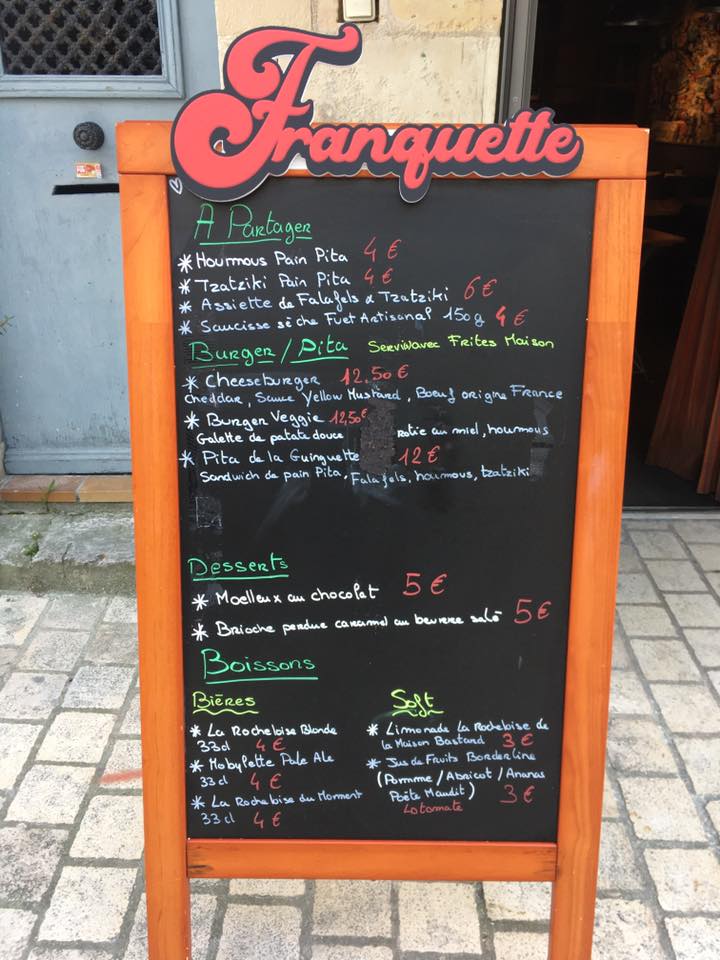 Franquette
A Partager
* Houmous Pain Pita 4 €
* Tzatziki Pain Pita 4 €
* Assiette de Falafels & Tzatziki 6 €
* Saucisse sèche Fuet Artisanal 150g 4 €
Burger / Pita Servis avec Frites Maison
* Cheeseburger 12.50 €
Cheddar, Sauce Yellow Mustard, Boeuf origine France
* Burger Veggie 12,50€
Galette de patate douce rotie au miel, houmous
* Pita de la Guinguette 12 €
Sandwich de pain Pita, Falafels, houmous, tzatziki
Desserts
* Moelleux au chocolat 5 €
* Brioche perdue caramel au beurre salé 5 €
Boissons
Bières
* La Rocheloise Blonde
33cl 4 €
* Mobylette Pale Ale
33 cl 4 €
* La Rocheloise du Moment
33 cl 4 €
Soft
* Limonade La Rocheloise de
la Maison Bastard 3 €
* Jus de Fruits Borderline
(Pomme / Abricot / Ananas
Poète Maudit) 3 €
Lotomate